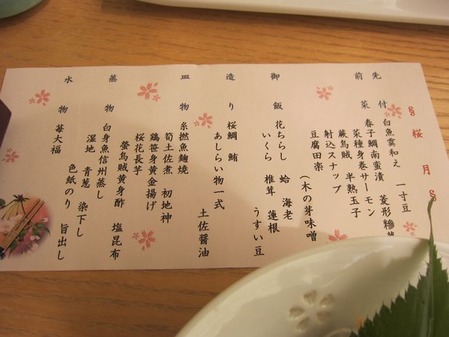 桜月
先付 白魚雲和え 一寸豆
前菜 春子鯛南蛮漬 菱形
菜種身巻サーモン
蕨烏賊 半熟玉子
射込スナップ
豆腐田楽 (木の芽味噌
御飯 花ちらし 蛤 海老
いくら 椎茸 蓮根
うすい豆
造り 桜鯛 鮪
あしらい物一式
土佐醤油
皿物 糸撚魚麹焼
筍土佐煮 初地神
鶏笹身黄金揚げ
桜花長芋
螢烏賊黄身酢 塩昆布
蒸物 白身魚信州蒸し
湿地 青葱 染下し
色紙のり 旨出し
水物 苺大福